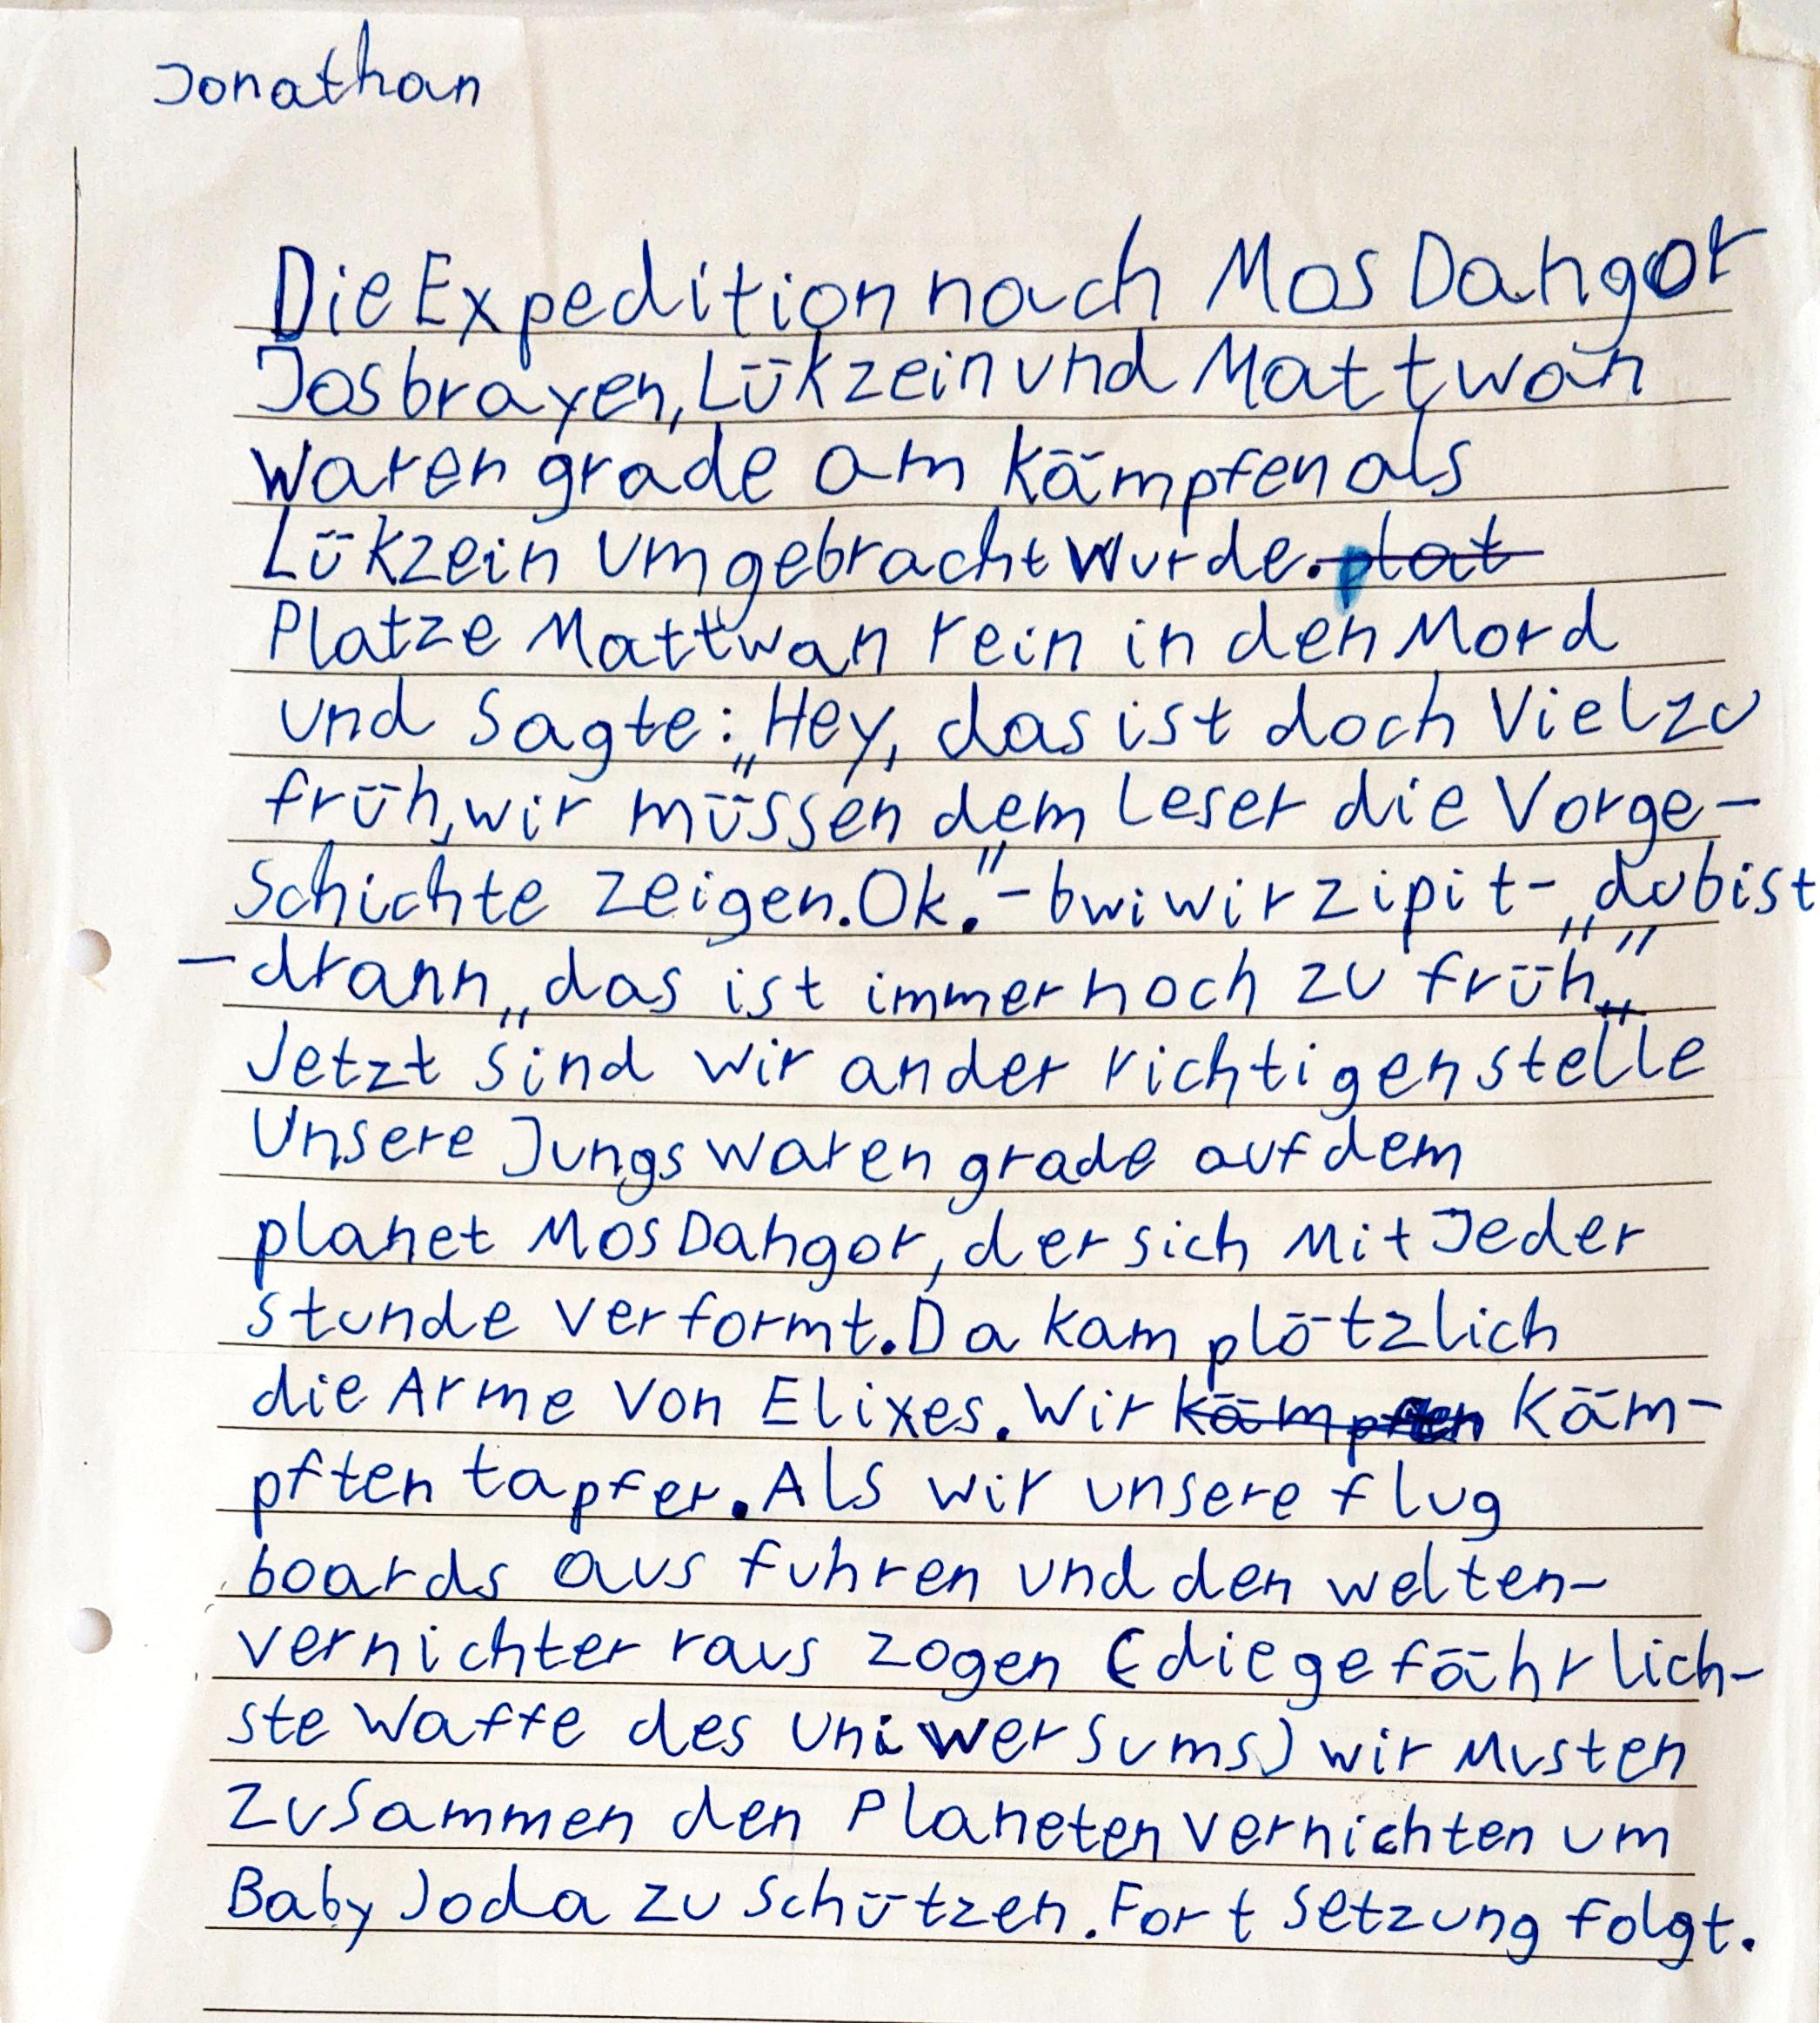 Jonathan
Die Expedition nach Mos Dangor
Josbrayen, Lükzein und Mattwan
waren grade am kämpfen als
Lükzein umgebracht wurde. plat
Platze Mattwan rein in den Mord
und sagte: „Hey, das ist doch Viel zu
früh, wir müssen dem leser die Vorge-
schichte zeigen. Ok." - bwiwirzipit - „du bist
- drann „das ist immer noch zu früh"„
Jetzt sind wir an der richtigen stelle
Unsere Jungs waren grade auf dem
planet Mos Dangor, der sich Mit Jeder
stunde verformt. Da kam plötzlich
die Arme von Elixes. Wir kämpften Käm-
pften tapfer. Als wir unsere flug
boards aus fuhren und den welten-
vernichter raus zogen (die gefährlich-
ste Waffe des uniwersums) wir Musten
Zusammen den Planeten vernichten um
Baby Joda zu schützen. Fort setzung folgt.